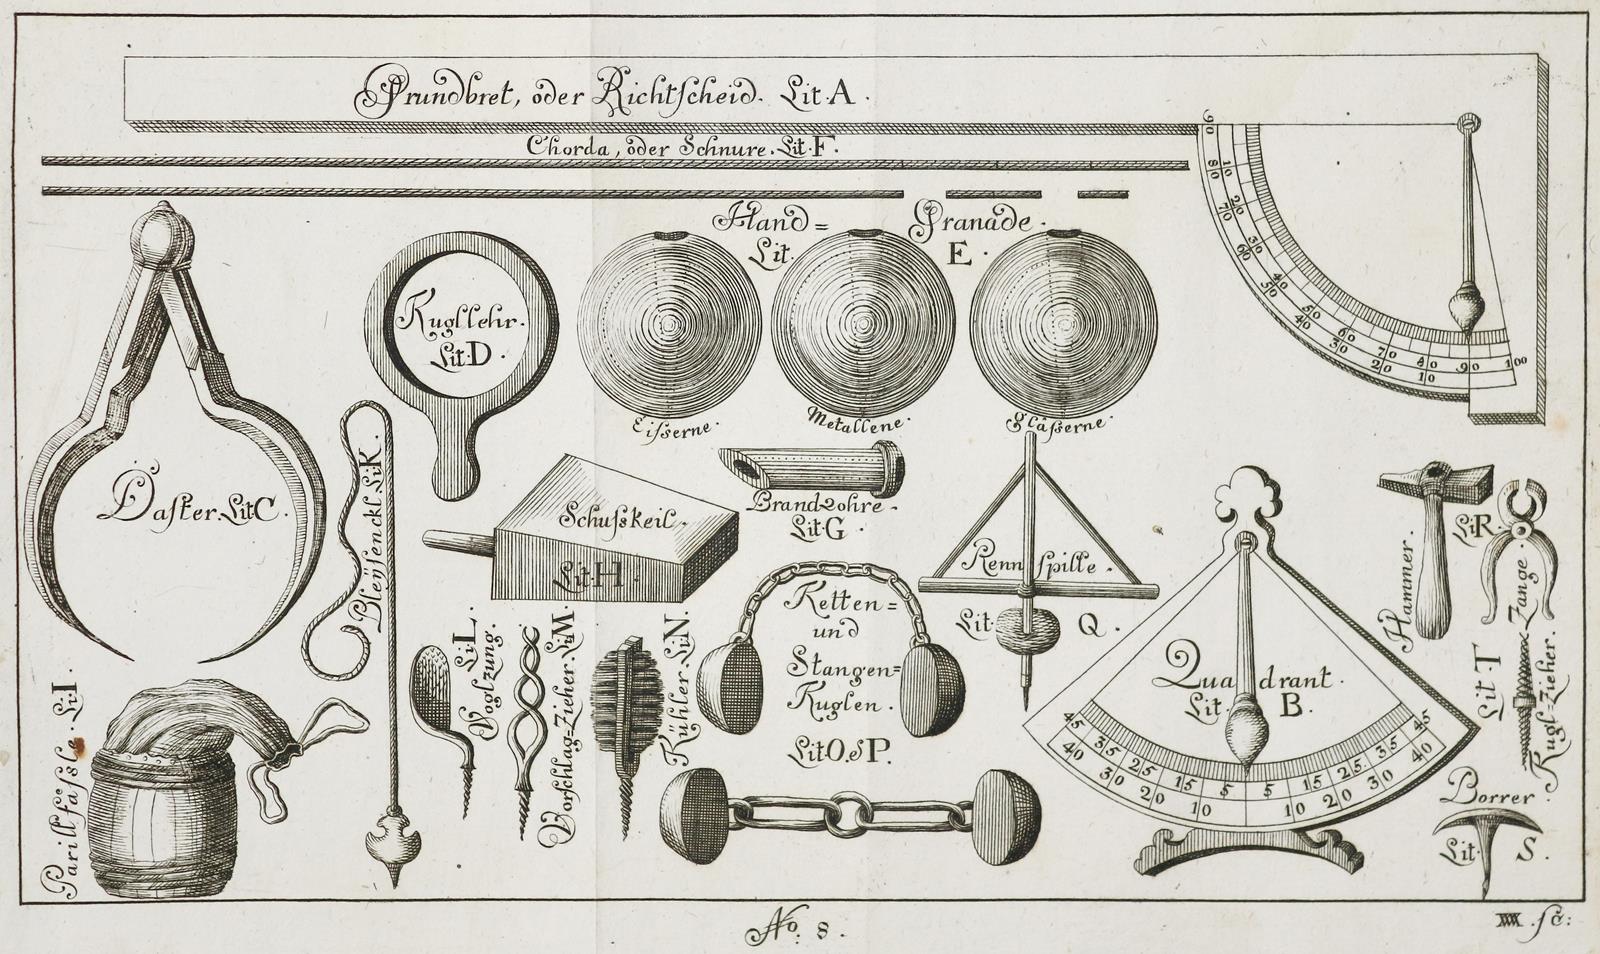 Grundbret, oder Richtscheid. Lit. A.
Chorda, oder Schnure. Lit. F.
90
80 10
70 20
60 30
50 40
40 50
30 60
20 70
10 80
90
100
Hand= Granade.
Lit. E.
Eisserne.
Metallene.
glässerne.
Kugllehr.
Lit. D.
Daster. Lit C.
Bleÿsenckl. Lit K.
Schusskeil.
Lit. H.
Brandrohre.
Lit. G.
Renn spille.
Lit Q.
Ketten=
und
Stangen=
Kuglen.
Lit O. & P.
Hammer.
Lit R.
Zange.
Quadrant.
Lit. B.
45 35 25 15 5 5 15 25 35 45
40 30 20 10 10 20 30 40
Lit T
Kugl-Zieher.
Borrer.
Lit. S.
Lit. L.
Voglzung.
Vorschlag-Zieher. Lit M.
Kühler. Lit N.
Parillfassle. Lit I.
No. 8.
sc: